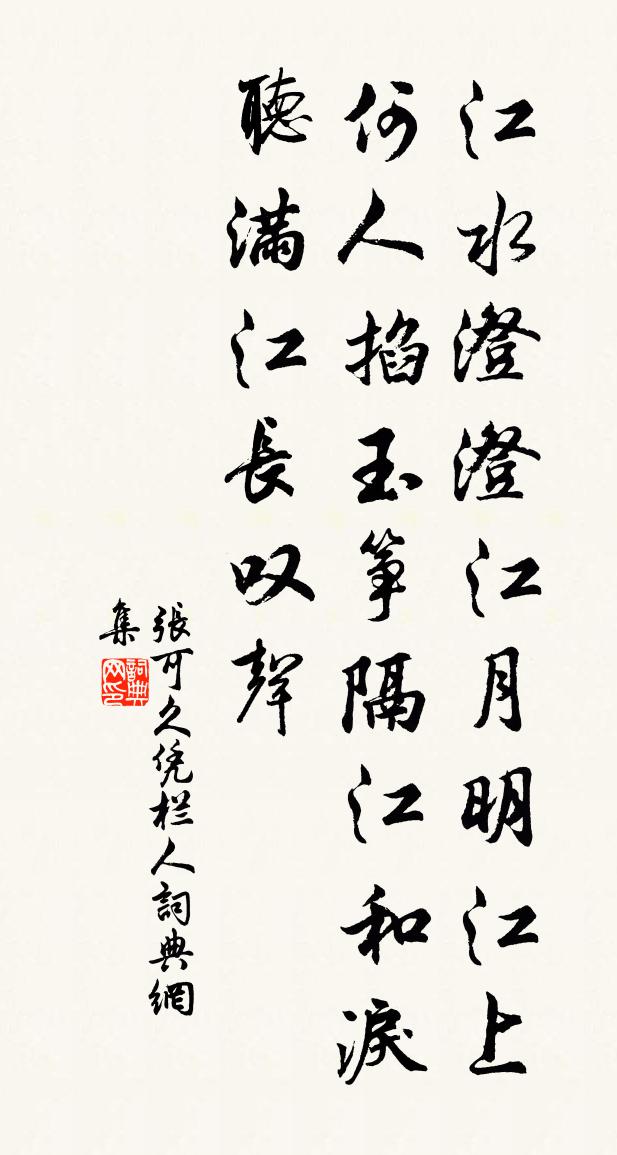 江水澄澄江月明江上
何人掐玉筝隔江和淚
聽滿江長叹聲
張可久凭栏人詞典網
集
詞典
网印